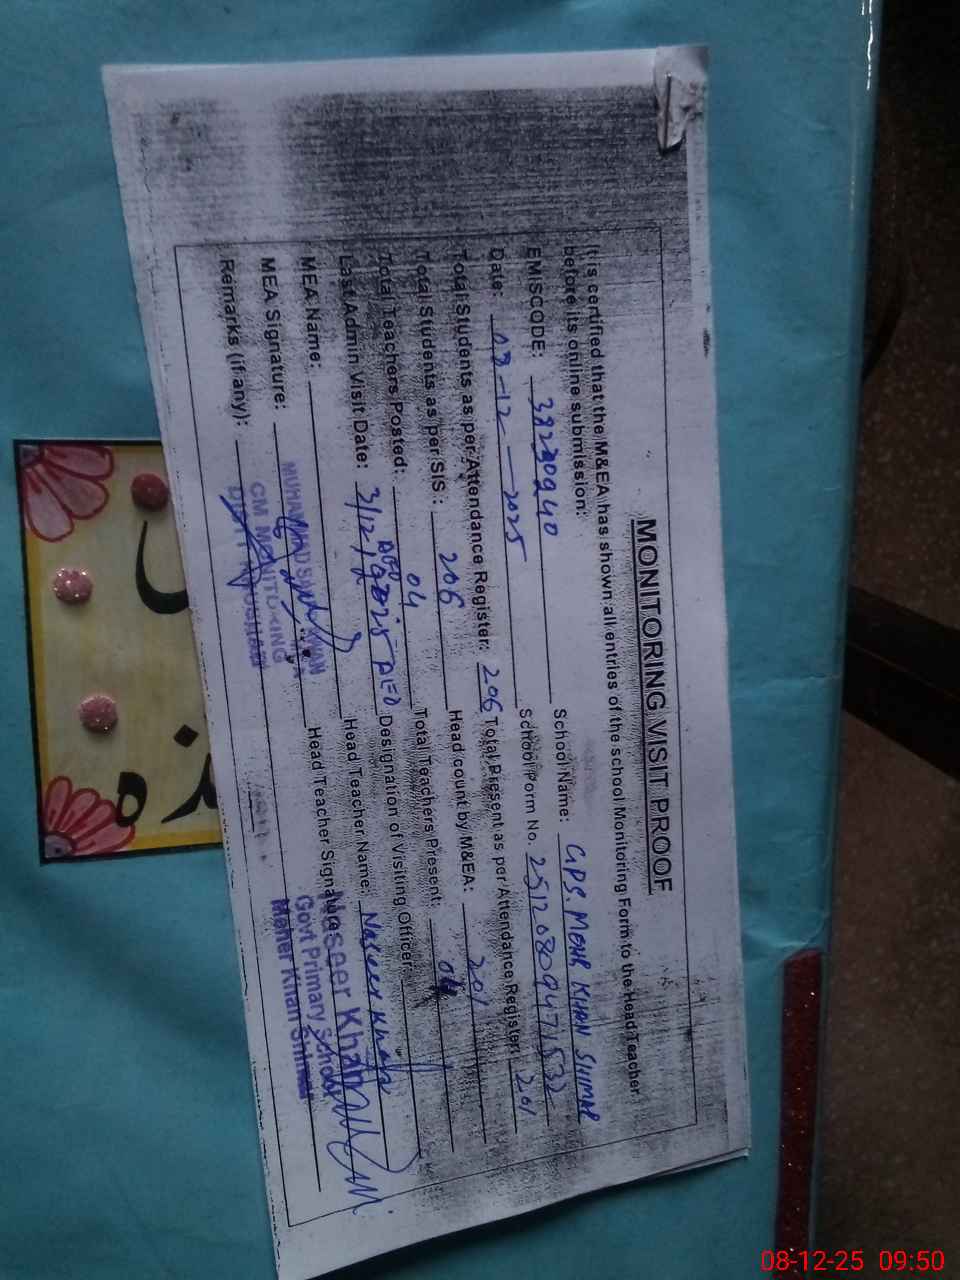 MONITORING VISIT PROOF
It is certified that the M&EA has shown all entries of the school Monitoring Form to the Head Teacher
before its online submission:
EMISCODE: 38230940 School Name: GPS. MEHR KHAN SHIMAL
Date: 08-12-2025 School Form No. 25120809471532
Total Students as per Attendance Register: 206 Total Present as per Attendance Register: 201
Total Students as per SIS: 206 Head count by M&EA: 201
Total Teachers Posted: 04 Total Teachers Present: 04
Last Admin Visit Date: 3/12/2025 Designation of Visiting Officer:
MEA Name: Head Teacher Name: Naseer Khan
MEA Signature: Head Teacher Signature
Remarks (if any):
MUHAMMAD
CM MONITORING
Naseer Khan
Govt Primary School
Meher Khan Shimal
08-12-25 09:50